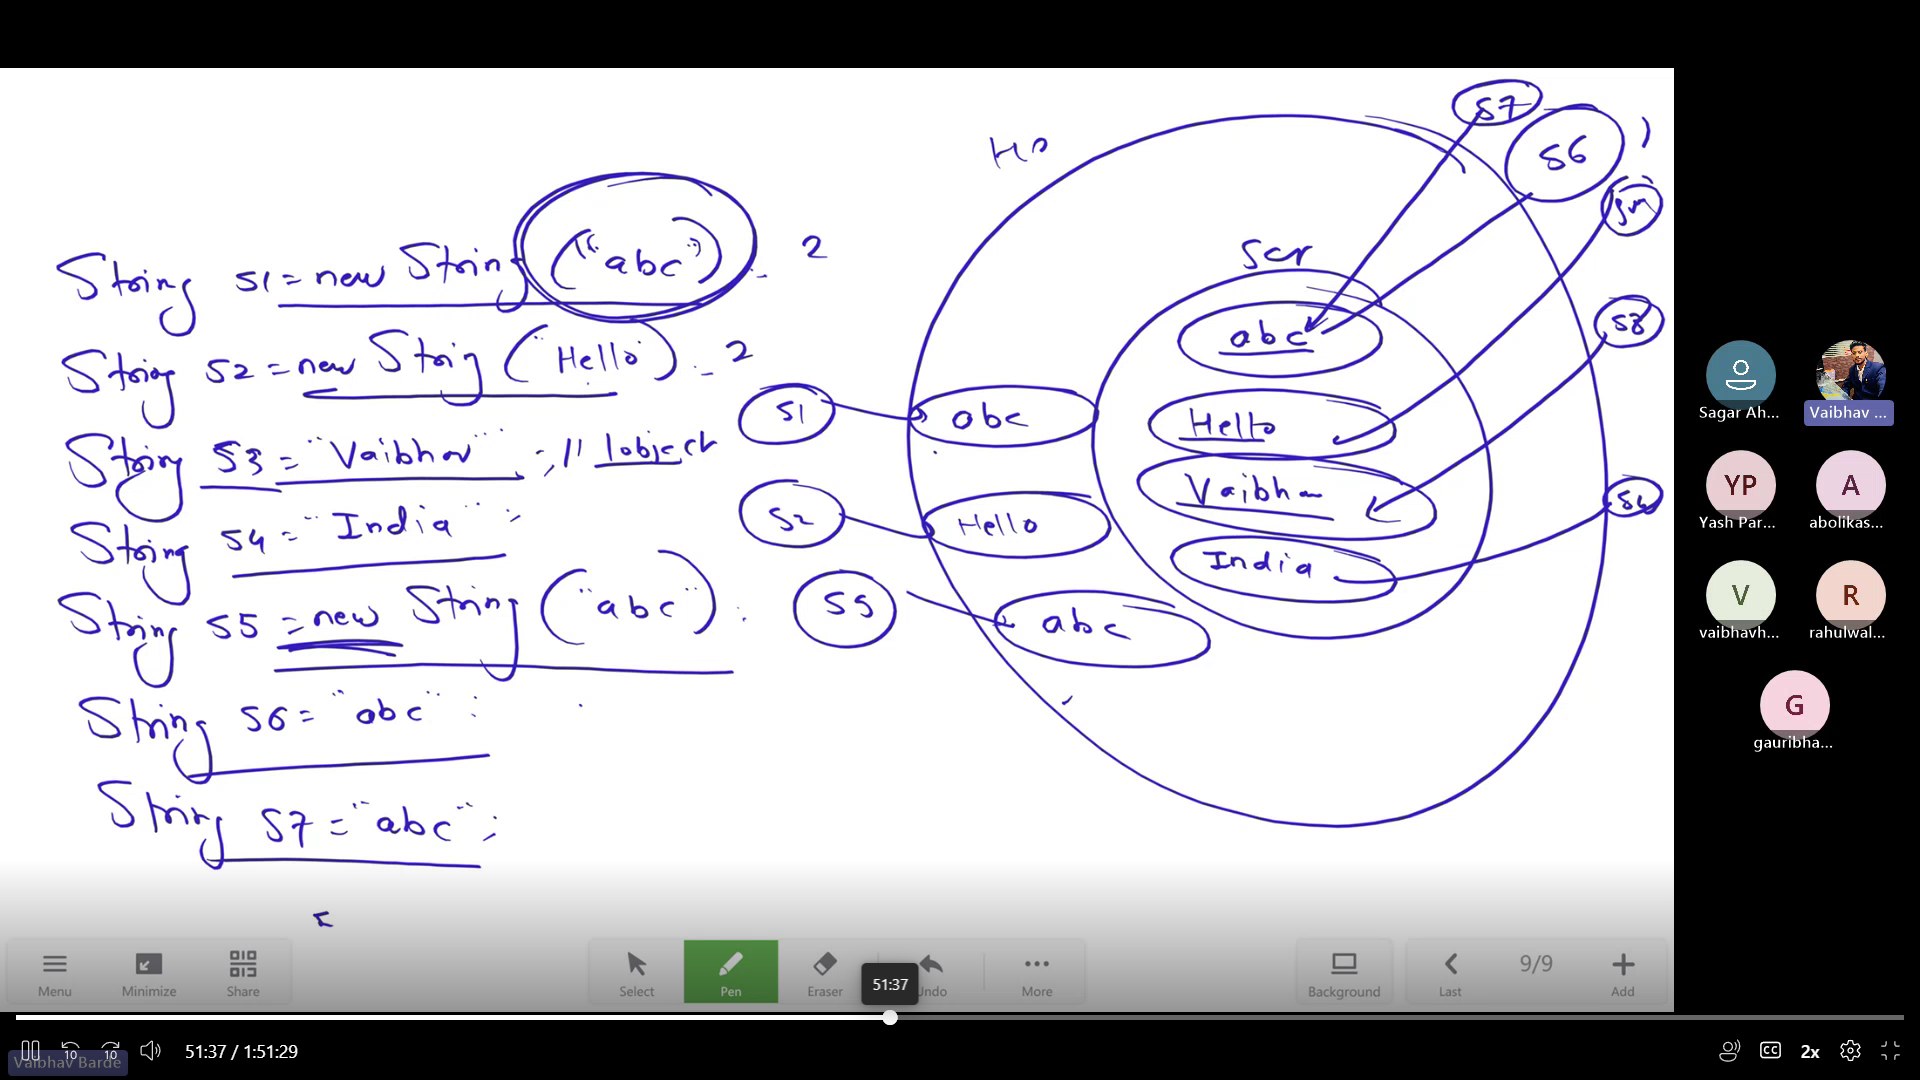 String s1 = new String ("abc"); 2
String s2 = new String ("Hello"); 2
String s3 = "Vaibhav"; // 1object
String s4 = "India";
String s5 = new String ("abc");
String s6 = "abc";
String s7 = "abc";
s1
s2
s5
abc
Hello
abc
Scr
abc
Hello
Vaibhav
India
s7
s6
s3
s4
Sagar Ah...
Vaibhav ...
YP
Yash Par...
A
abolikas...
V
vaibhavh...
R
rahulwal...
G
gauribha...
Menu
Minimize
Share
Select
Pen
Eraser
Undo
More
Background
Last
9/9
Add
51:37
10
10
51:37 / 1:51:29
CC
2x
Vaibhav Barde